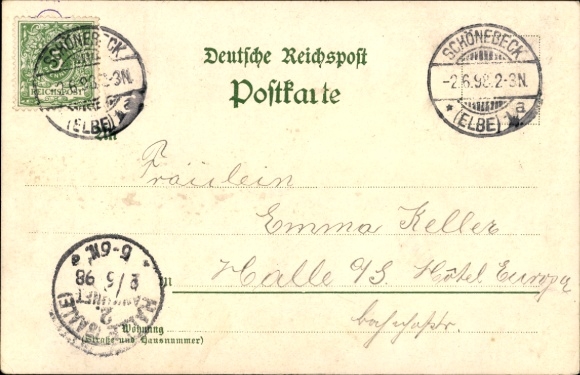 SCHÖNEBECK
5
REICHSPOST
(ELBE) a
Deutsche Reichspost
Postkarte
SCHÖNEBECK
-2.6.98.2-3N.
* (ELBE) 1a
Fräulein
Emma Keller
in Halle a/S. Hôtel Europa
Bahnhofstr.
5-6N.
98
ANKUNFT
2.
HALLE (SAALE)
Wohnung
(Straße und Hausnummer)